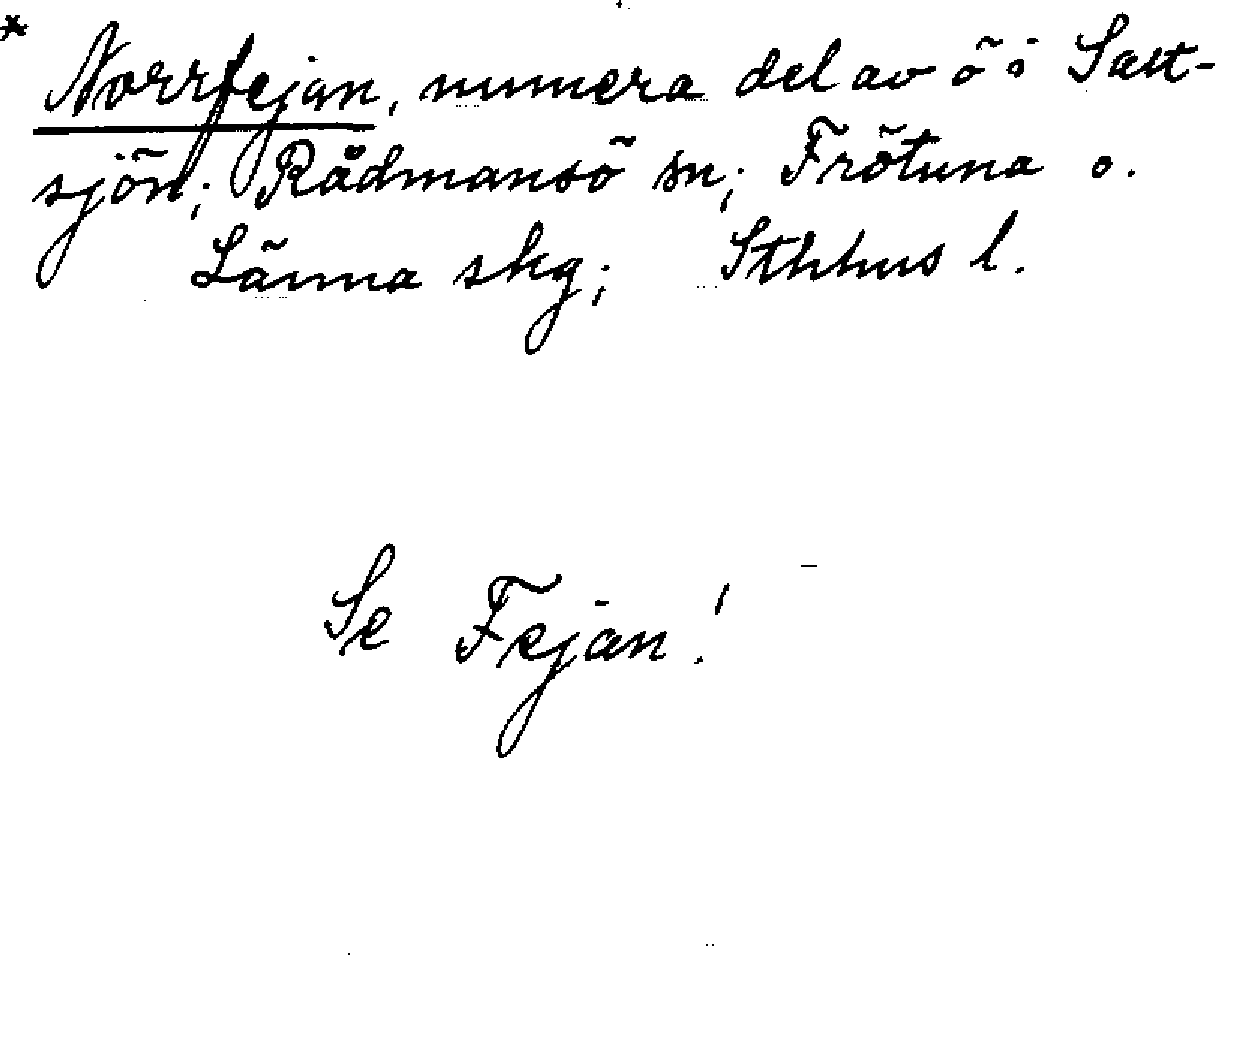 * Norrfejan, numera del av ö i Salt-
sjön; Rådmansö sn; Frötuna o.
Länna skg; Sthhus l.
Se Fejan!